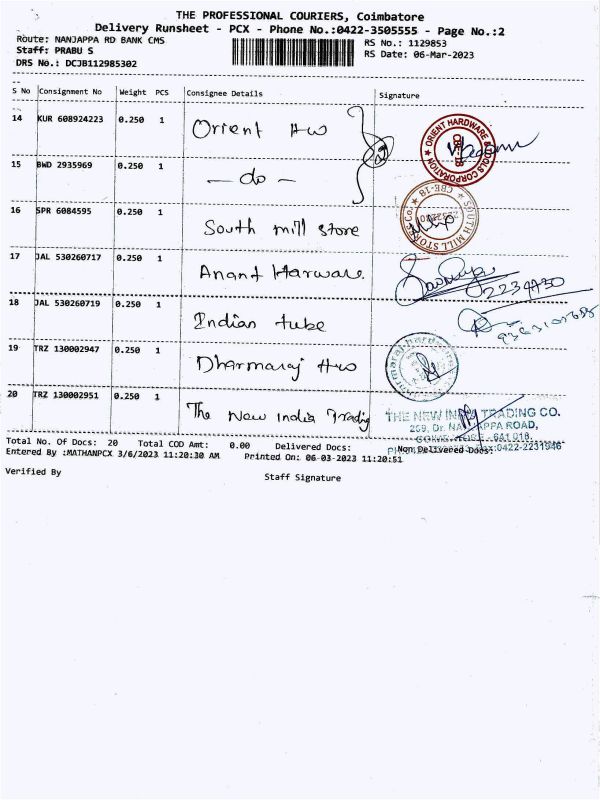 THE PROFESSIONAL COURIERS, Coimbatore
Delivery Runsheet - PCX - Phone No.:0422-3505555 - Page No.:2
Route: NANJAPPA RD BANK CMS
RS No.: 1129853
Staff: PRABU S
RS Date: 06-Mar-2023
DRS No.: DCJB112985302
S No Consignment No Weight PCS Consignee Details Signature
14 KUR 608924223 0.250 1 Orient HW
ORIENT HARDWARE & TOOLS CORPORATION
CBE-18
15 BWD 2935969 0.250 1 - do -
16 SPR 6084595 0.250 1 South mill store
SOUTH MILL STORES CBE-18
17 JAL 530260717 0.250 1 Anant Harware.
2234730
18 JAL 530260719 0.250 1 Indian tube
19 TRZ 130002947 0.250 1 Dharmaraj HW
20 TRZ 130002951 0.250 1 The New India Trading
THE NEW INDIA TRADING CO.
269, Dr. NANJAPPA ROAD,
COIMBATORE - 641 018.
Fax:0422-2231946
Total No. Of Docs: 20 Total COD Amt: 0.00 Delivered Docs: Non Delivered Docs:
Entered By :MATHANPCX 3/6/2023 11:20:30 AM Printed On: 06-03-2023 11:20:51
Verified By
Staff Signature